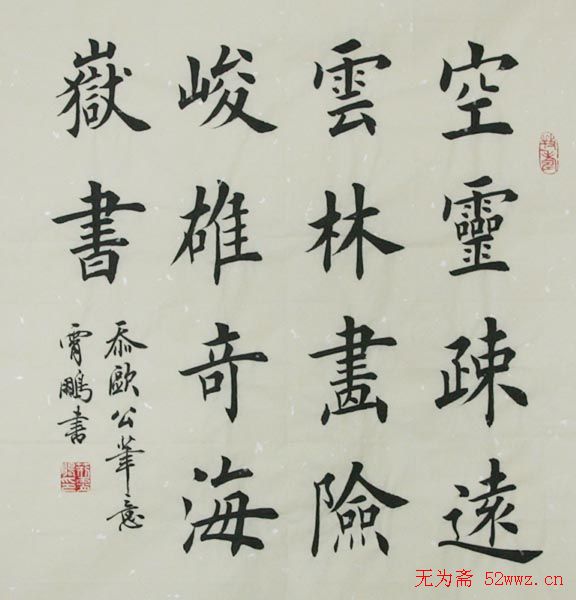 空靈疎遠
雲林畵險
峻雄奇海
嶽書
忝歐公筆意
霄鵬書
无为斋 52wwz.cn